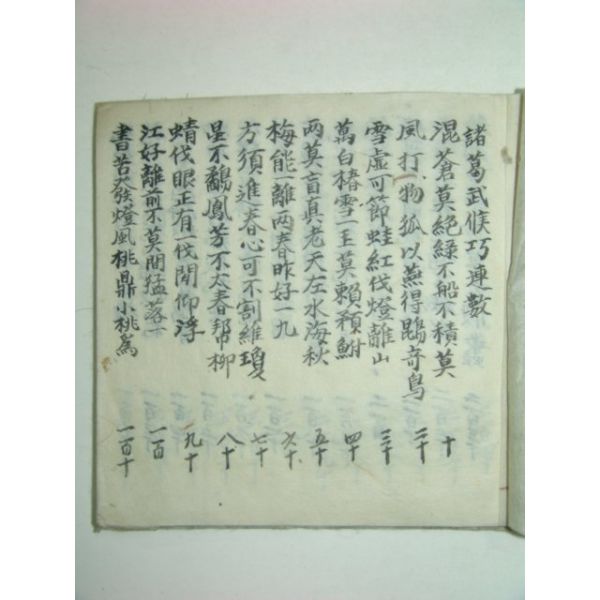 諸葛武候巧連數
混蒼莫絕綠不船不積莫 十
風打物孤以蕉得鵾奇鳥 二十
雪虛可節蛙紅伐燈離山 三十
萬白椿雪一玉莫賴預鮒 四十
両莫盲真老天左水海秋 五十
梅能一離両春昨好一九 六十
方須進春心可不割維瓊 七十
是不鷸鳳芳不太春幇柳 八十
蜻伐眼正有一伐閒仰浮 九十
江好離前不莫間猛落一 一百
書苦發燈風桃鼎小桃為 一百十